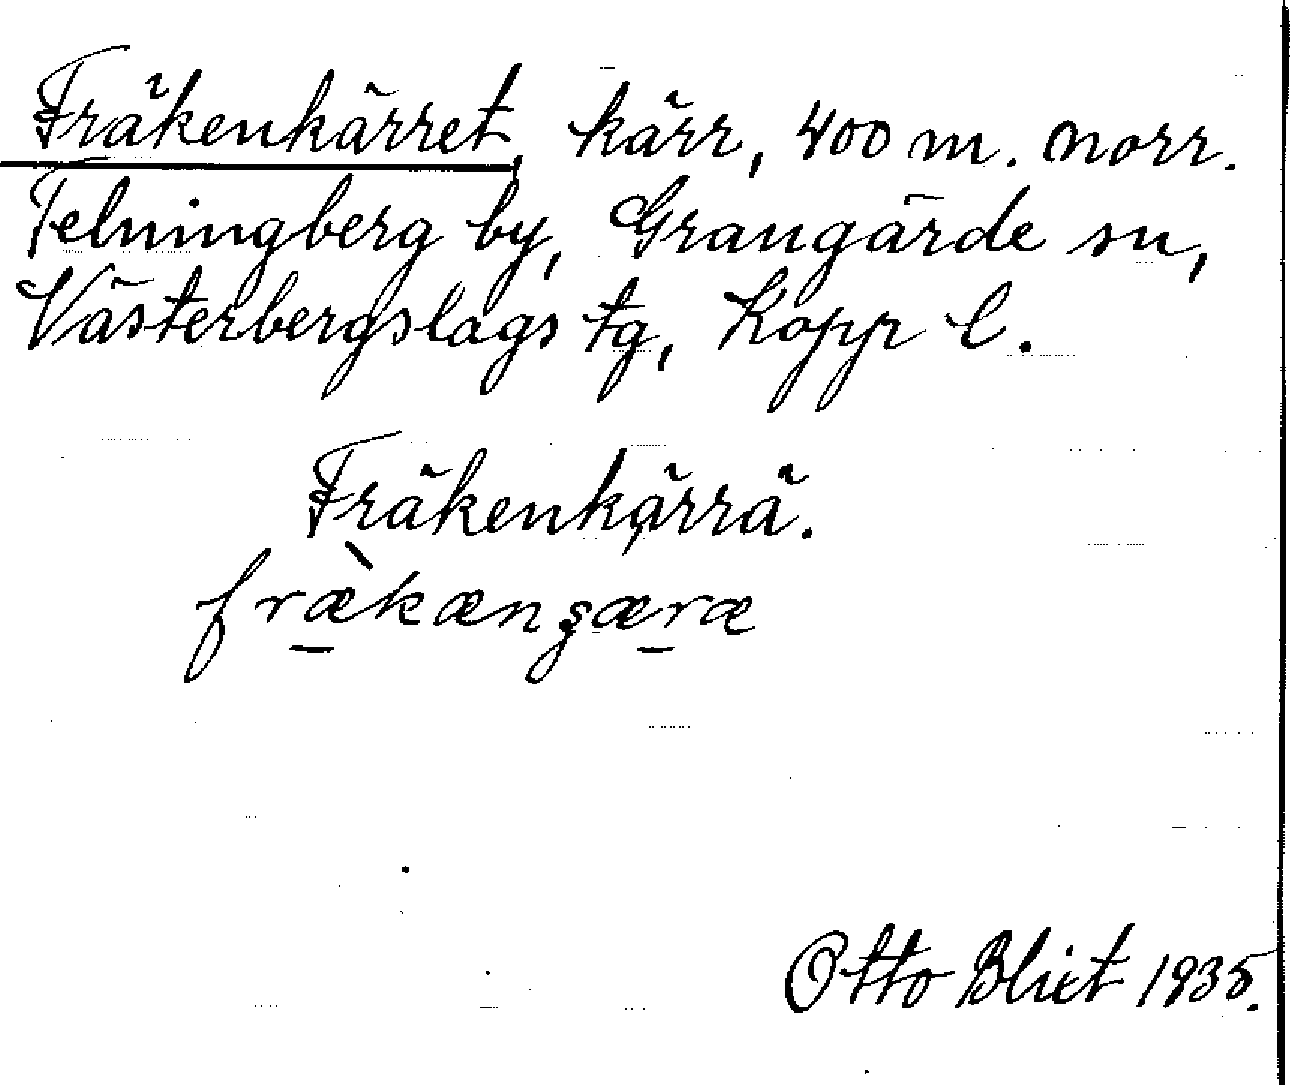 Fräkenkärret, kärr, 400 m. norr.
Telningberg by, Grangärde sn,
Västerbergslags tg, Kopp l.
Fräkenkärrä.
fræ̀kænȿæræ
Otto Blixt 1935.